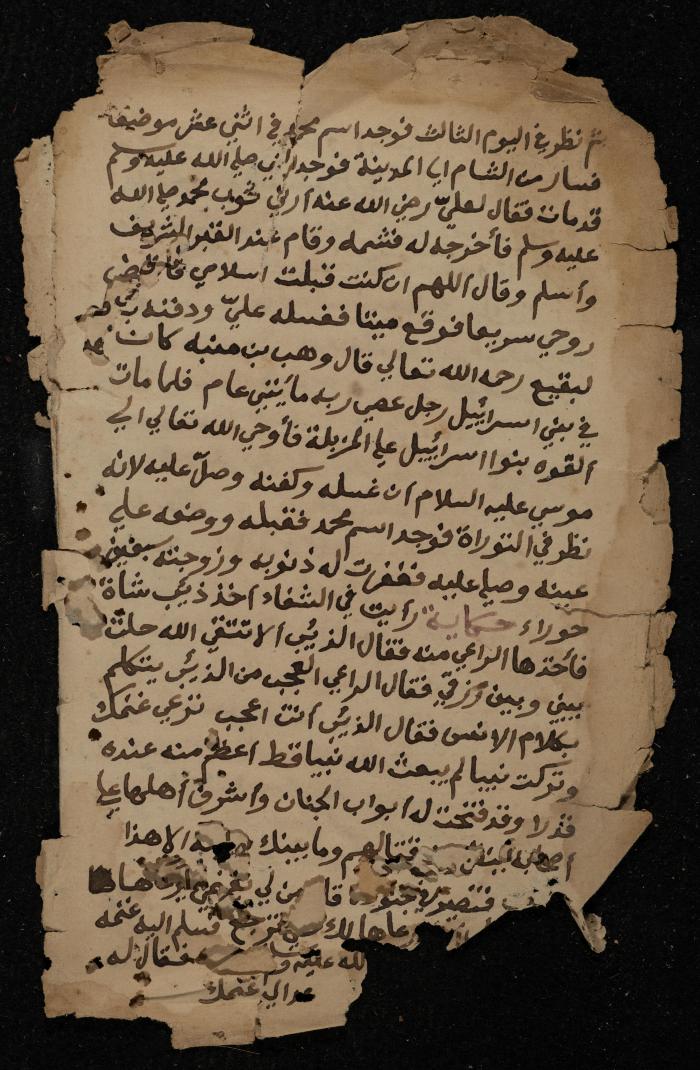 ثم نظر في اليوم الثالث فوجد اسم محمد في اثني عشر موضعا
فسار من الشام الي المدينة فوجد النبي صلي الله عليه وسلم
قد مات فقال لعليّ رضي الله عنه أرني ثوب محمد صلي الله
عليه وسلم فأخرجه له فشمه وقام عند القبر الشريف
وأسلم وقال اللهم ان كنت قبلت اسلامي فاقبض
روحي سريعا فوقع ميتا فغسله عليّ ودفنه
لبقيع رحمه الله تعالي قال وهب بن منبه كان
في بني اسرائيل رجل عصي ربه مأيتي عام فلما مات
القوه بنوا اسرائيل علي المزبلة فأوحي الله تعالي الي
موسي عليه السلام أن غسله وكفنه وصلّ عليه لانه
نظر في التوراة فوجد اسم محمد فقبله ووضعه علي
عينه وصلي عليه فغفرت له ذنوبه وزوجته سبعين
حوراء حكاية رأيت في الشفاء أخذ ذئب شاة
فأخذها الراعي منه فقال الذئب ألا تتقي الله حلت
بيني وبين رزقي فقال الراعي العجب من الذئب يتكلم
بكلام الانس فقال الذئب أنت اعجب ترعي غنمك
وتركت نبيا لم يبعث الله نبيا قط أعظم منه عنده
قدرا وقد فتحت له أبواب الجنان وأشرف أهلها علي
أصحابه قتالهم وما بينك وبينه الا هذا
فتصير في جنود قا من لي بغنمي أرعاها
عاها لك ترجع فسلم اليه غنمه
لله عليه و فقال له
عد الي غنمك